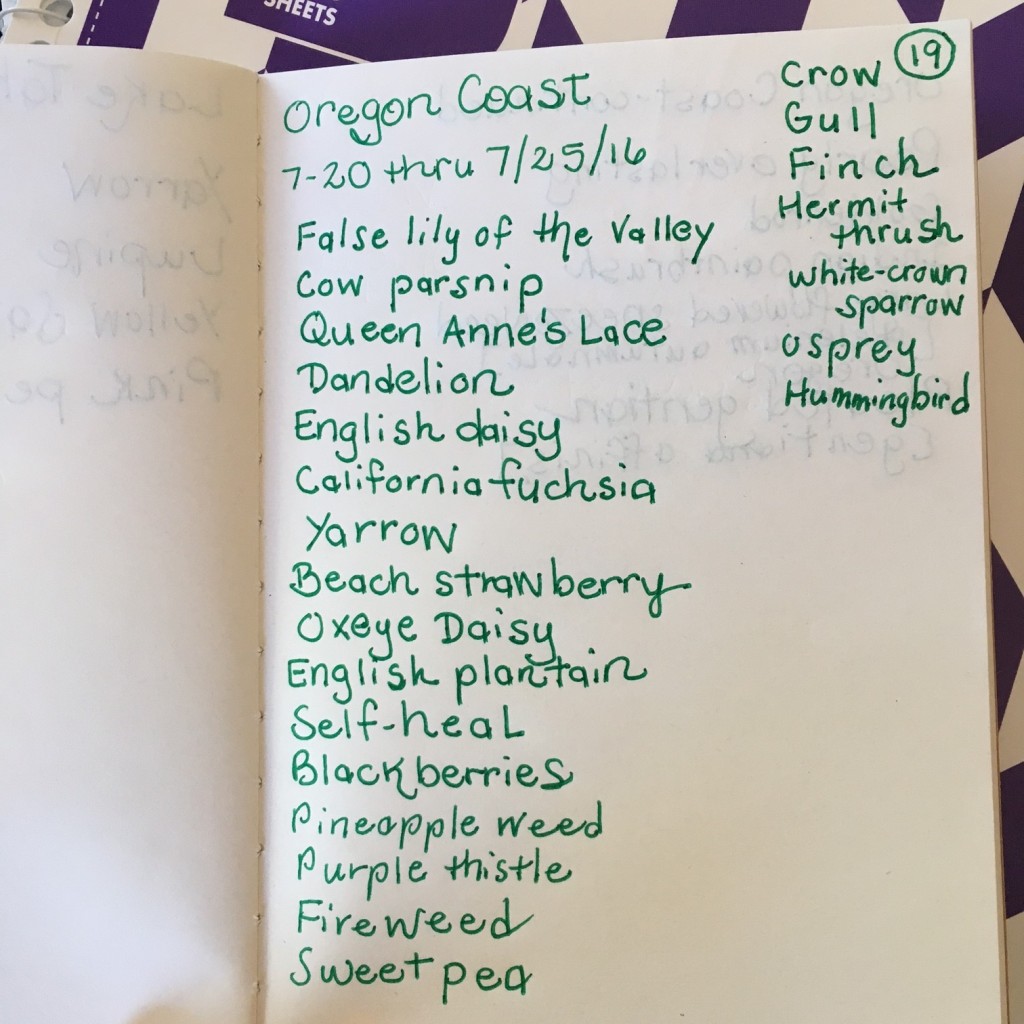 SHEETS
19
Oregon Coast
7-20 thru 7/25/16
False lily of the Valley
Cow parsnip
Queen Anne's Lace
Dandelion
English daisy
California fuchsia
Yarrow
Beach strawberry
Oxeye Daisy
English plantain
Self-heal
Blackberries
Pineapple weed
Purple thistle
Fireweed
Sweet pea
Crow
Gull
Finch
Hermit
thrush
white-crown
sparrow
Osprey
Hummingbird